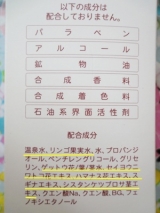 以下の成分は
配合しておりません。
パラベン
アルコール
鉱物油
合成香料
合成着色料
石油系界面活性剤
配合成分
温泉水、リンゴ果実水、水、プロパンジ
オール、ペンチレングリコール、グリセ
リン、ゲットウ花/葉/茎水、セイヨウニ
ワトコ花エキス、ハマナス花エキス、ス
ギナエキス、システンケツブロサ茎エ
キス、クエン酸Na、クエン酸、BG、フェ
ノキシエタノール